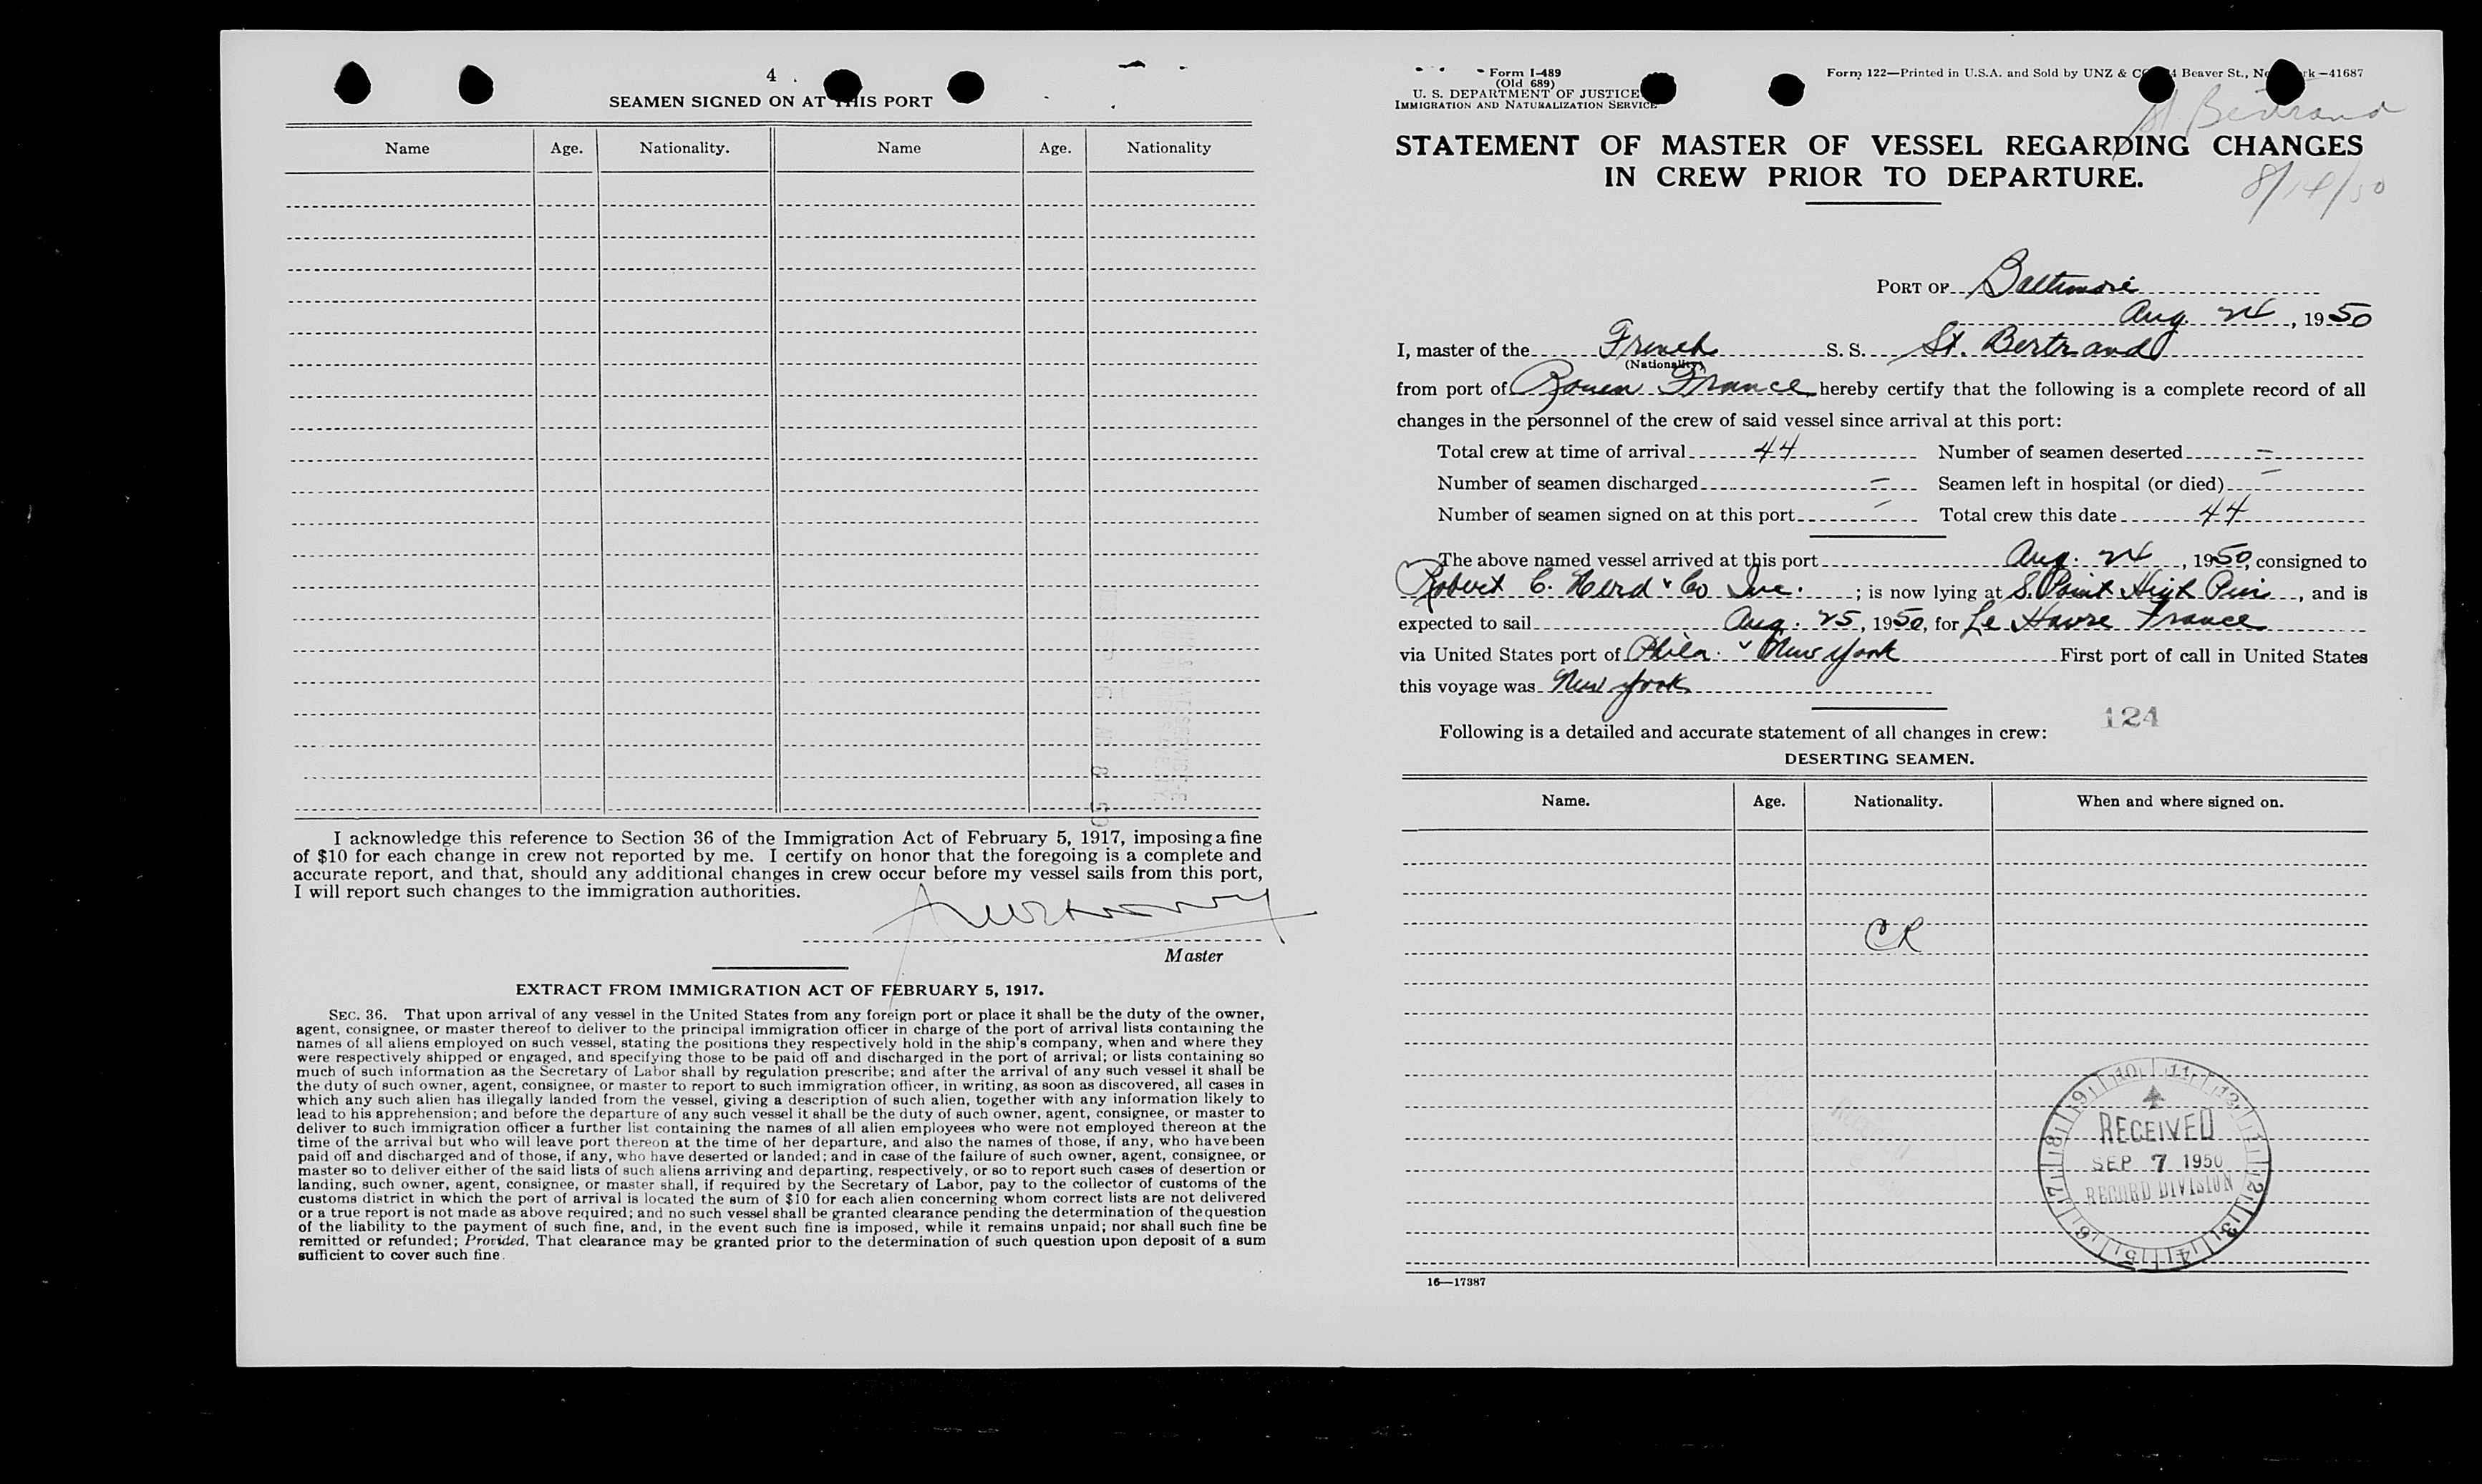 4
SEAMEN SIGNED ON AT THIS PORT
Name Age. Nationality. Name Age. Nationality
I acknowledge this reference to Section 36 of the Immigration Act of February 5, 1917, imposing a fine
of $10 for each change in crew not reported by me. I certify on honor that the foregoing is a complete and
accurate report, and that, should any additional changes in crew occur before my vessel sails from this port,
I will report such changes to the immigration authorities.
Master
EXTRACT FROM IMMIGRATION ACT OF FEBRUARY 5, 1917.
SEC. 36. That upon arrival of any vessel in the United States from any foreign port or place it shall be the duty of the owner,
agent, consignee, or master thereof to deliver to the principal immigration officer in charge of the port of arrival lists containing the
names of all aliens employed on such vessel, stating the positions they respectively hold in the ship's company, when and where they
were respectively shipped or engaged, and specifying those to be paid off and discharged in the port of arrival; or lists containing so
much of such information as the Secretary of Labor shall by regulation prescribe; and after the arrival of any such vessel it shall be
the duty of such owner, agent, consignee, or master to report to such immigration officer, in writing, as soon as discovered, all cases in
which any such alien has illegally landed from the vessel, giving a description of such alien, together with any information likely to
lead to his apprehension; and before the departure of any such vessel it shall be the duty of such owner, agent, consignee, or master to
deliver to such immigration officer a further list containing the names of all alien employees who were not employed thereon at the
time of the arrival but who will leave port thereon at the time of her departure, and also the names of those, if any, who have been
paid off and discharged and of those, if any, who have deserted or landed; and in case of the failure of such owner, agent, consignee, or
master so to deliver either of the said lists of such aliens arriving and departing, respectively, or so to report such cases of desertion or
landing, such owner, agent, consignee, or master shall, if required by the Secretary of Labor, pay to the collector of customs of the
customs district in which the port of arrival is located the sum of $10 for each alien concerning whom correct lists are not delivered
or a true report is not made as above required; and no such vessel shall be granted clearance pending the determination of the question
of the liability to the payment of such fine, and, in the event such fine is imposed, while it remains unpaid; nor shall such fine be
remitted or refunded; Provided, That clearance may be granted prior to the determination of such question upon deposit of a sum
sufficient to cover such fine.
Form I-489
(Old 689)
U. S. DEPARTMENT OF JUSTICE
IMMIGRATION AND NATURALIZATION SERVICE
Form 122—Printed in U.S.A. and Sold by UNZ & CO Beaver St., New York—41687
St Bertrand
STATEMENT OF MASTER OF VESSEL REGARDING CHANGES
IN CREW PRIOR TO DEPARTURE.
8/14/50
PORT OF Baltimore
Aug. 24, 1950
I, master of the French S. S. St. Bertrand
(Nationality)
from port of Rouen France hereby certify that the following is a complete record of all
changes in the personnel of the crew of said vessel since arrival at this port:
Total crew at time of arrival 44 Number of seamen deserted -
Number of seamen discharged - Seamen left in hospital (or died) -
Number of seamen signed on at this port - Total crew this date 44
The above named vessel arrived at this port Aug. 24, 1950, consigned to
Robert C. Herd & Co Inc. ; is now lying at S. Point High Pier, and is
expected to sail Aug. 25, 1950, for Le Havre France
via United States port of Phila. & New York First port of call in United States
this voyage was New York
124
Following is a detailed and accurate statement of all changes in crew:
DESERTING SEAMEN.
Name. Age. Nationality. When and where signed on.
CR
RECEIVED
SEP 7 1950
RECORD DIVISION
16—17387